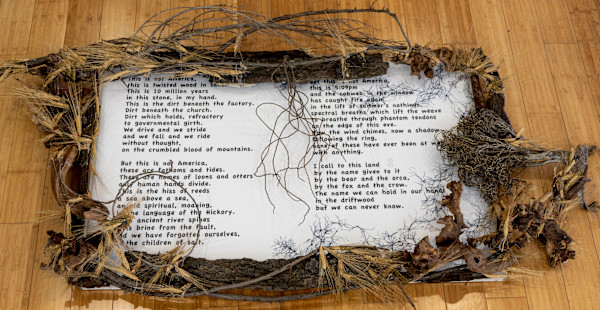 This is not America,
this is twisted wood in
This is 10 million years
in this stone, in my hand.
This is the dirt beneath the factory.
Dirt beneath the church.
Dirt which holds, refractory
to governmental girth.
We drive and we stride
and we fall and we ride
without thought,
on the crumbled blood of mountains.
But this is not America,
these are fathoms and tides.
These are homes of loons and otters
only human hands divide.
This is the hiss of reeds
a sea above a sea,
an old spiritual, moaning,
the language of the Hickory.
ancient river spines
this brine from the fault,
and we have forgotten ourselves,
the children of salt.
But this is not America,
this is 5:09pm
and the cobweb in the window
has caught fire again,
in the lilt of summer's nothings,
spectral breaths which lift the weave
to breathe through phantom tendons
on the edge of this eve.
Now the wind chimes, now a shadow
following the ring,
none of these have ever been at war
with anything.
I call to this land
by the name given to it
by the bear and the orca,
by the fox and the crow.
The name we can hold in our hands
in the driftwood
but we can never know.